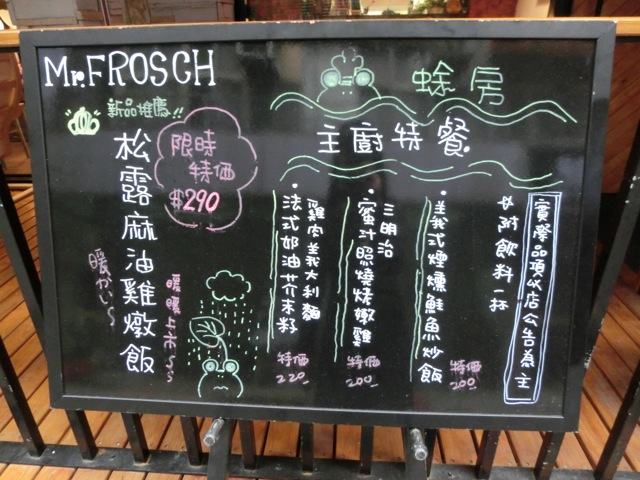 Mr. FROSCH
新品推薦!!
限時
特価
$290
松露麻油雞燉飯
暖かい~
暖暖上市~~
蛙房
主廚特餐
實際品項以店公告為主
附飲料一杯
・義式煙燻鮭魚炒飯
特価
200
・蜜汁照燒烤嫩雞
三明治
特価
200
・法式奶油芥末籽
雞肉義大利麵
特価
220